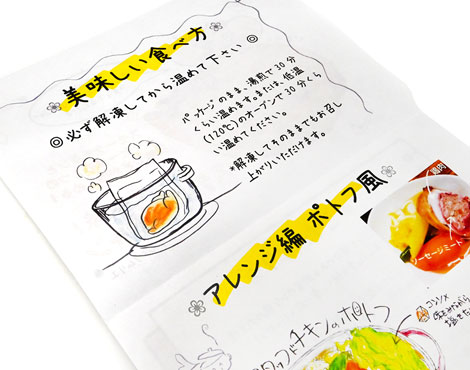 美味しい食べ方
◎必ず解凍してから温めて下さい◎
パッケージのまま、湯煎で30分
くらい温めます。または、低温
(120℃)のオーブンで30分くら
い温めてください。
*解凍してそのままでもお召し
上がりいただけます。
アレンジ編 ポトフ風
鶏肉
ソーセージミート
コンソメ
チキンのポトフ